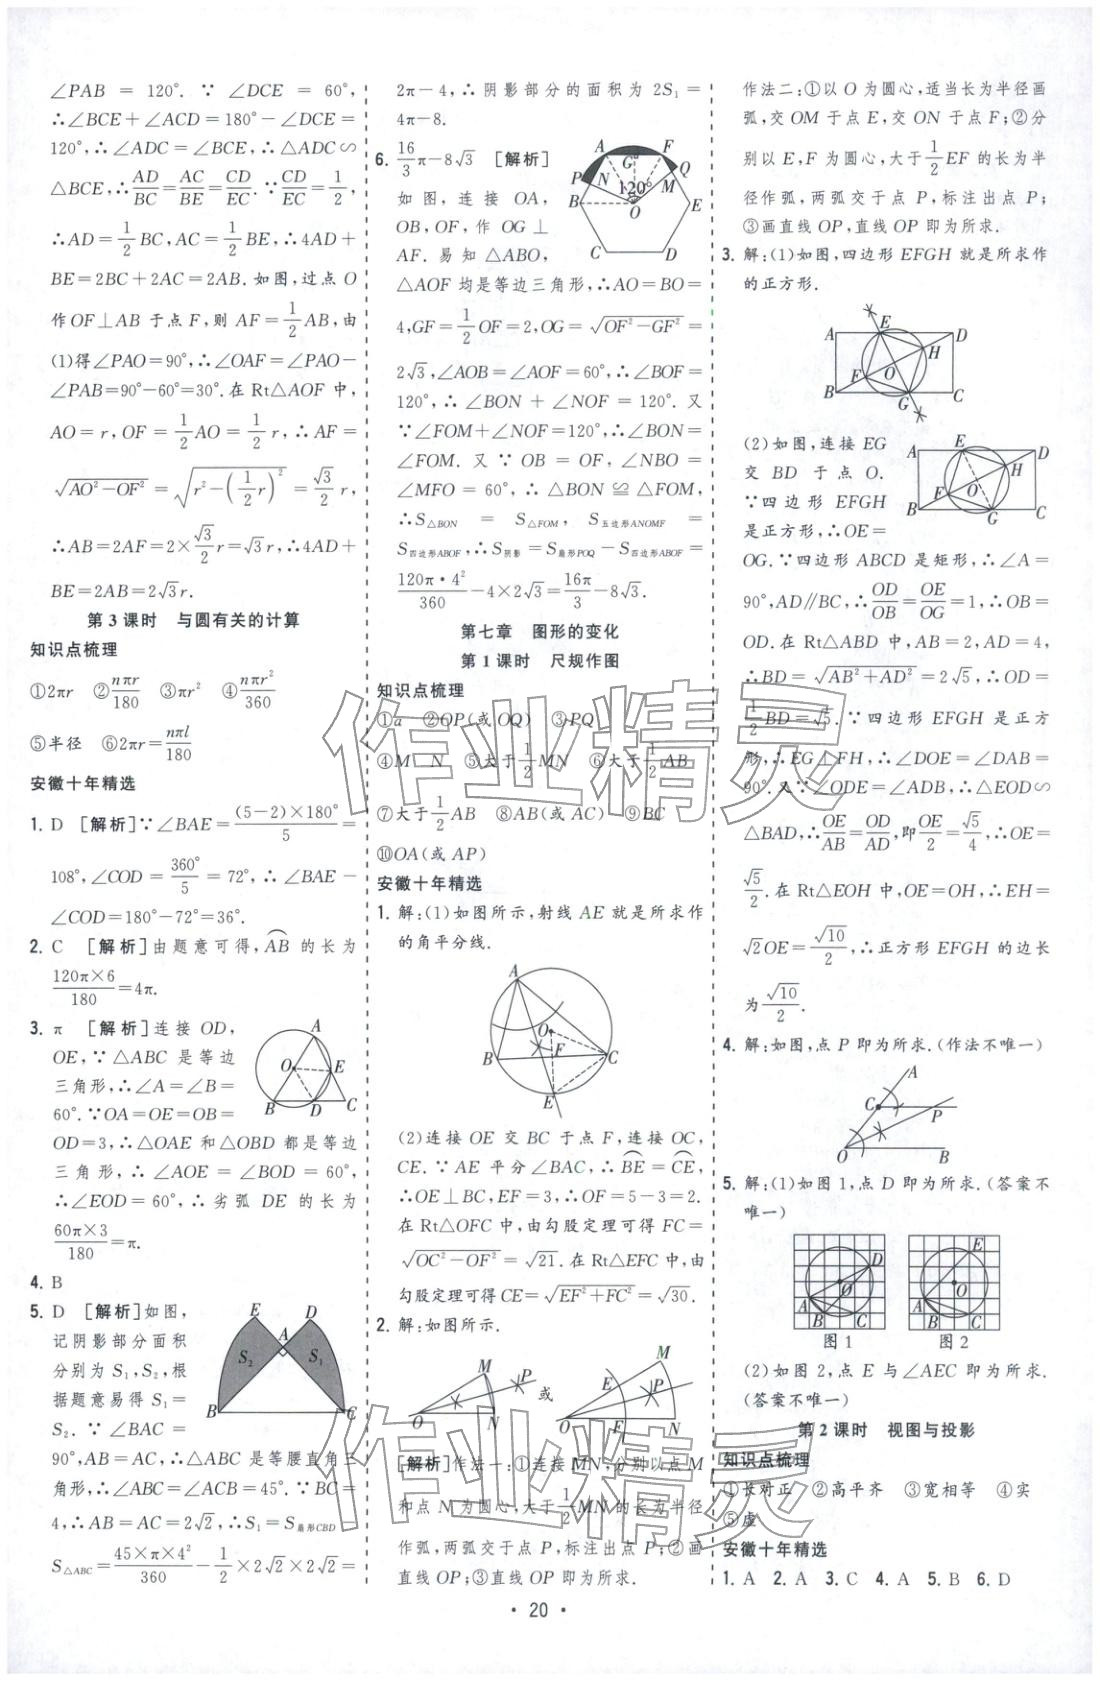 ∠PAB = 120°. ∵ ∠DCE = 60°,
∴∠BCE+∠ACD=180°−∠DCE=
120°,∴∠ADC=∠BCE,∴△ADC∽
△BCE,∴AD/BC=AC/BE=CD/EC.∵CD/EC=1/2,
∴AD=1/2BC,AC=1/2BE,∴4AD+
BE=2BC+2AC=2AB.如图,过点 O
作OF⊥AB 于点 F,则 AF=1/2AB,由
(1)得∠PAO=90°,∴∠OAF=∠PAO−
∠PAB=90°−60°=30°.在 Rt△AOF 中,
AO=r,OF=1/2AO=1/2r,∴AF=
√(AO²−OF²)=√(r²−(1/2r)²)=√3/2r,
∴AB=2AF=2×√3/2r=√3r,∴4AD+
BE=2AB=2√3r.
第3课时 与圆有关的计算
知识点梳理
①2πr ②nπr/180 ③πr² ④nπr²/360
⑤半径 ⑥2πr=nπl/180
安徽十年精选
1. D [解析]∵∠BAE=(5−2)×180°/5=
108°,∠COD=360°/5=72°,∴∠BAE−
∠COD=180°−72°=36°.
2. C [解析]由题意可得,AB⌒的长为
120π×6/180=4π.
3. π [解析]连接 OD,
OE,∵△ABC 是等边
三角形,∴∠A=∠B=
60°.∵OA=OE=OB=
OD=3,∴△OAE 和△OBD 都是等边
三角形,∴∠AOE=∠BOD=60°,
∴∠EOD=60°,∴劣弧 DE 的长为
60π×3/180=π.
A
O
E
B
D
C
4. B
5. D [解析]如图,
记阴影部分面积
分别为 S₁,S₂,根
据题意易得 S₁=
S₂.∵∠BAC=
90°,AB=AC,∴△ABC 是等腰直角三
角形,∴∠ABC=∠ACB=45°.∵BC=
4,∴AB=AC=2√2,∴S₁=S扇形CBD−
S△ABC=45×π×4²/360−1/2×2√2×2√2=
E
D
A
S₂
S₁
B
C
2π−4,∴阴影部分的面积为 2S₁=
4π−8.
6. 16/3π−8√3 [解析]
如图,连接 OA,
OB,OF,作 OG⊥
AF.易知△ABO,
△AOF均是等边三角形,∴AO=BO=
4,GF=1/2OF=2,OG=√(OF²−GF²)=
2√3,∠AOB=∠AOF=60°,∴∠BOF=
120°,∴∠BON+∠NOF=120°.又
∵∠FOM+∠NOF=120°,∴∠BON=
∠FOM.又∵OB=OF,∠NBO=
∠MFO=60°,∴△BON≌△FOM,
∴S△BON=S△FOM,S五边形ANOMF=
S四边形ABOF,∴S阴影=S扇形POQ−S四边形ABOF=
120π·4²/360−4×2√3=16π/3−8√3.
A
F
G
P
N
Q
M
120°
B
O
E
C
D
第七章 图形的变化
第1课时 尺规作图
知识点梳理
①a ②OP(或 OQ) ③PQ
④M N ⑤大于1/2MN ⑥大于1/2AB
⑦大于1/2AB ⑧AB(或 AC) ⑨BC
⑩OA(或 AP)
安徽十年精选
1. 解:(1)如图所示,射线 AE 就是所求作
的角平分线.
A
O
B
F
C
E
(2)连接 OE 交 BC 于点 F,连接 OC,
CE.∵AE 平分∠BAC,∴BE⌒=CE⌒,
∴OE⊥BC,EF=3,∴OF=5−3=2.
在 Rt△OFC 中,由勾股定理可得 FC=
√(OC²−OF²)=√21.在 Rt△EFC 中,由
勾股定理可得CE=√(EF²+FC²)=√30.
2. 解:如图所示.
M
P
O
N
或
M
E
P
O
F
N
[解析]作法一:①连接 MN,分别以点 M
和点 N 为圆心,大于1/2MN 的长为半径
作弧,两弧交于点 P,标注出点 P;②画
直线 OP;③直线 OP 即为所求.
作法二:①以 O 为圆心,适当长为半径画
弧,交 OM 于点 E,交 ON 于点 F;②分
别以 E,F 为圆心,大于1/2EF 的长为半
径作弧,两弧交于点 P,标注出点 P;
③画直线 OP,直线 OP 即为所求.
3. 解:(1)如图,四边形 EFGH 就是所求作
的正方形.
A
E
D
H
F
O
B
G
C
(2)如图,连接 EG
交 BD 于点 O.
∵四边形 EFGH
是正方形,∴OE=
OG.∵四边形 ABCD 是矩形,∴∠A=
90°,AD∥BC,∴OD/OB=OE/OG=1,∴OB=
OD.在 Rt△ABD 中,AB=2,AD=4,
∴BD=√(AB²+AD²)=2√5,∴OD=
1/2BD=√5.∵四边形 EFGH 是正方
形,∴EG⊥FH,∴∠DOE=∠DAB=
90°.又∵∠ODE=∠ADB,∴△EOD∽
△BAD,∴OE/AB=OD/AD,即OE/2=√5/4,∴OE=
√5/2.在 Rt△EOH 中,OE=OH,∴EH=
√2OE=√10/2,∴正方形 EFGH 的边长
为√10/2.
A
E
D
H
F
O
B
G
C
4. 解:如图,点 P 即为所求.(作法不唯一)
A
C
P
O
B
5. 解:(1)如图 1,点 D 即为所求.(答案不
唯一)
D
O
A
B
C
图 1
E
O
A
B
C
图 2
(2)如图 2,点 E 与∠AEC 即为所求.
(答案不唯一)
第2课时 视图与投影
知识点梳理
①长对正 ②高平齐 ③宽相等 ④实
⑤虚
安徽十年精选
1. A 2. A 3. C 4. A 5. B 6. D
· 20 ·
作业精灵
作业精灵